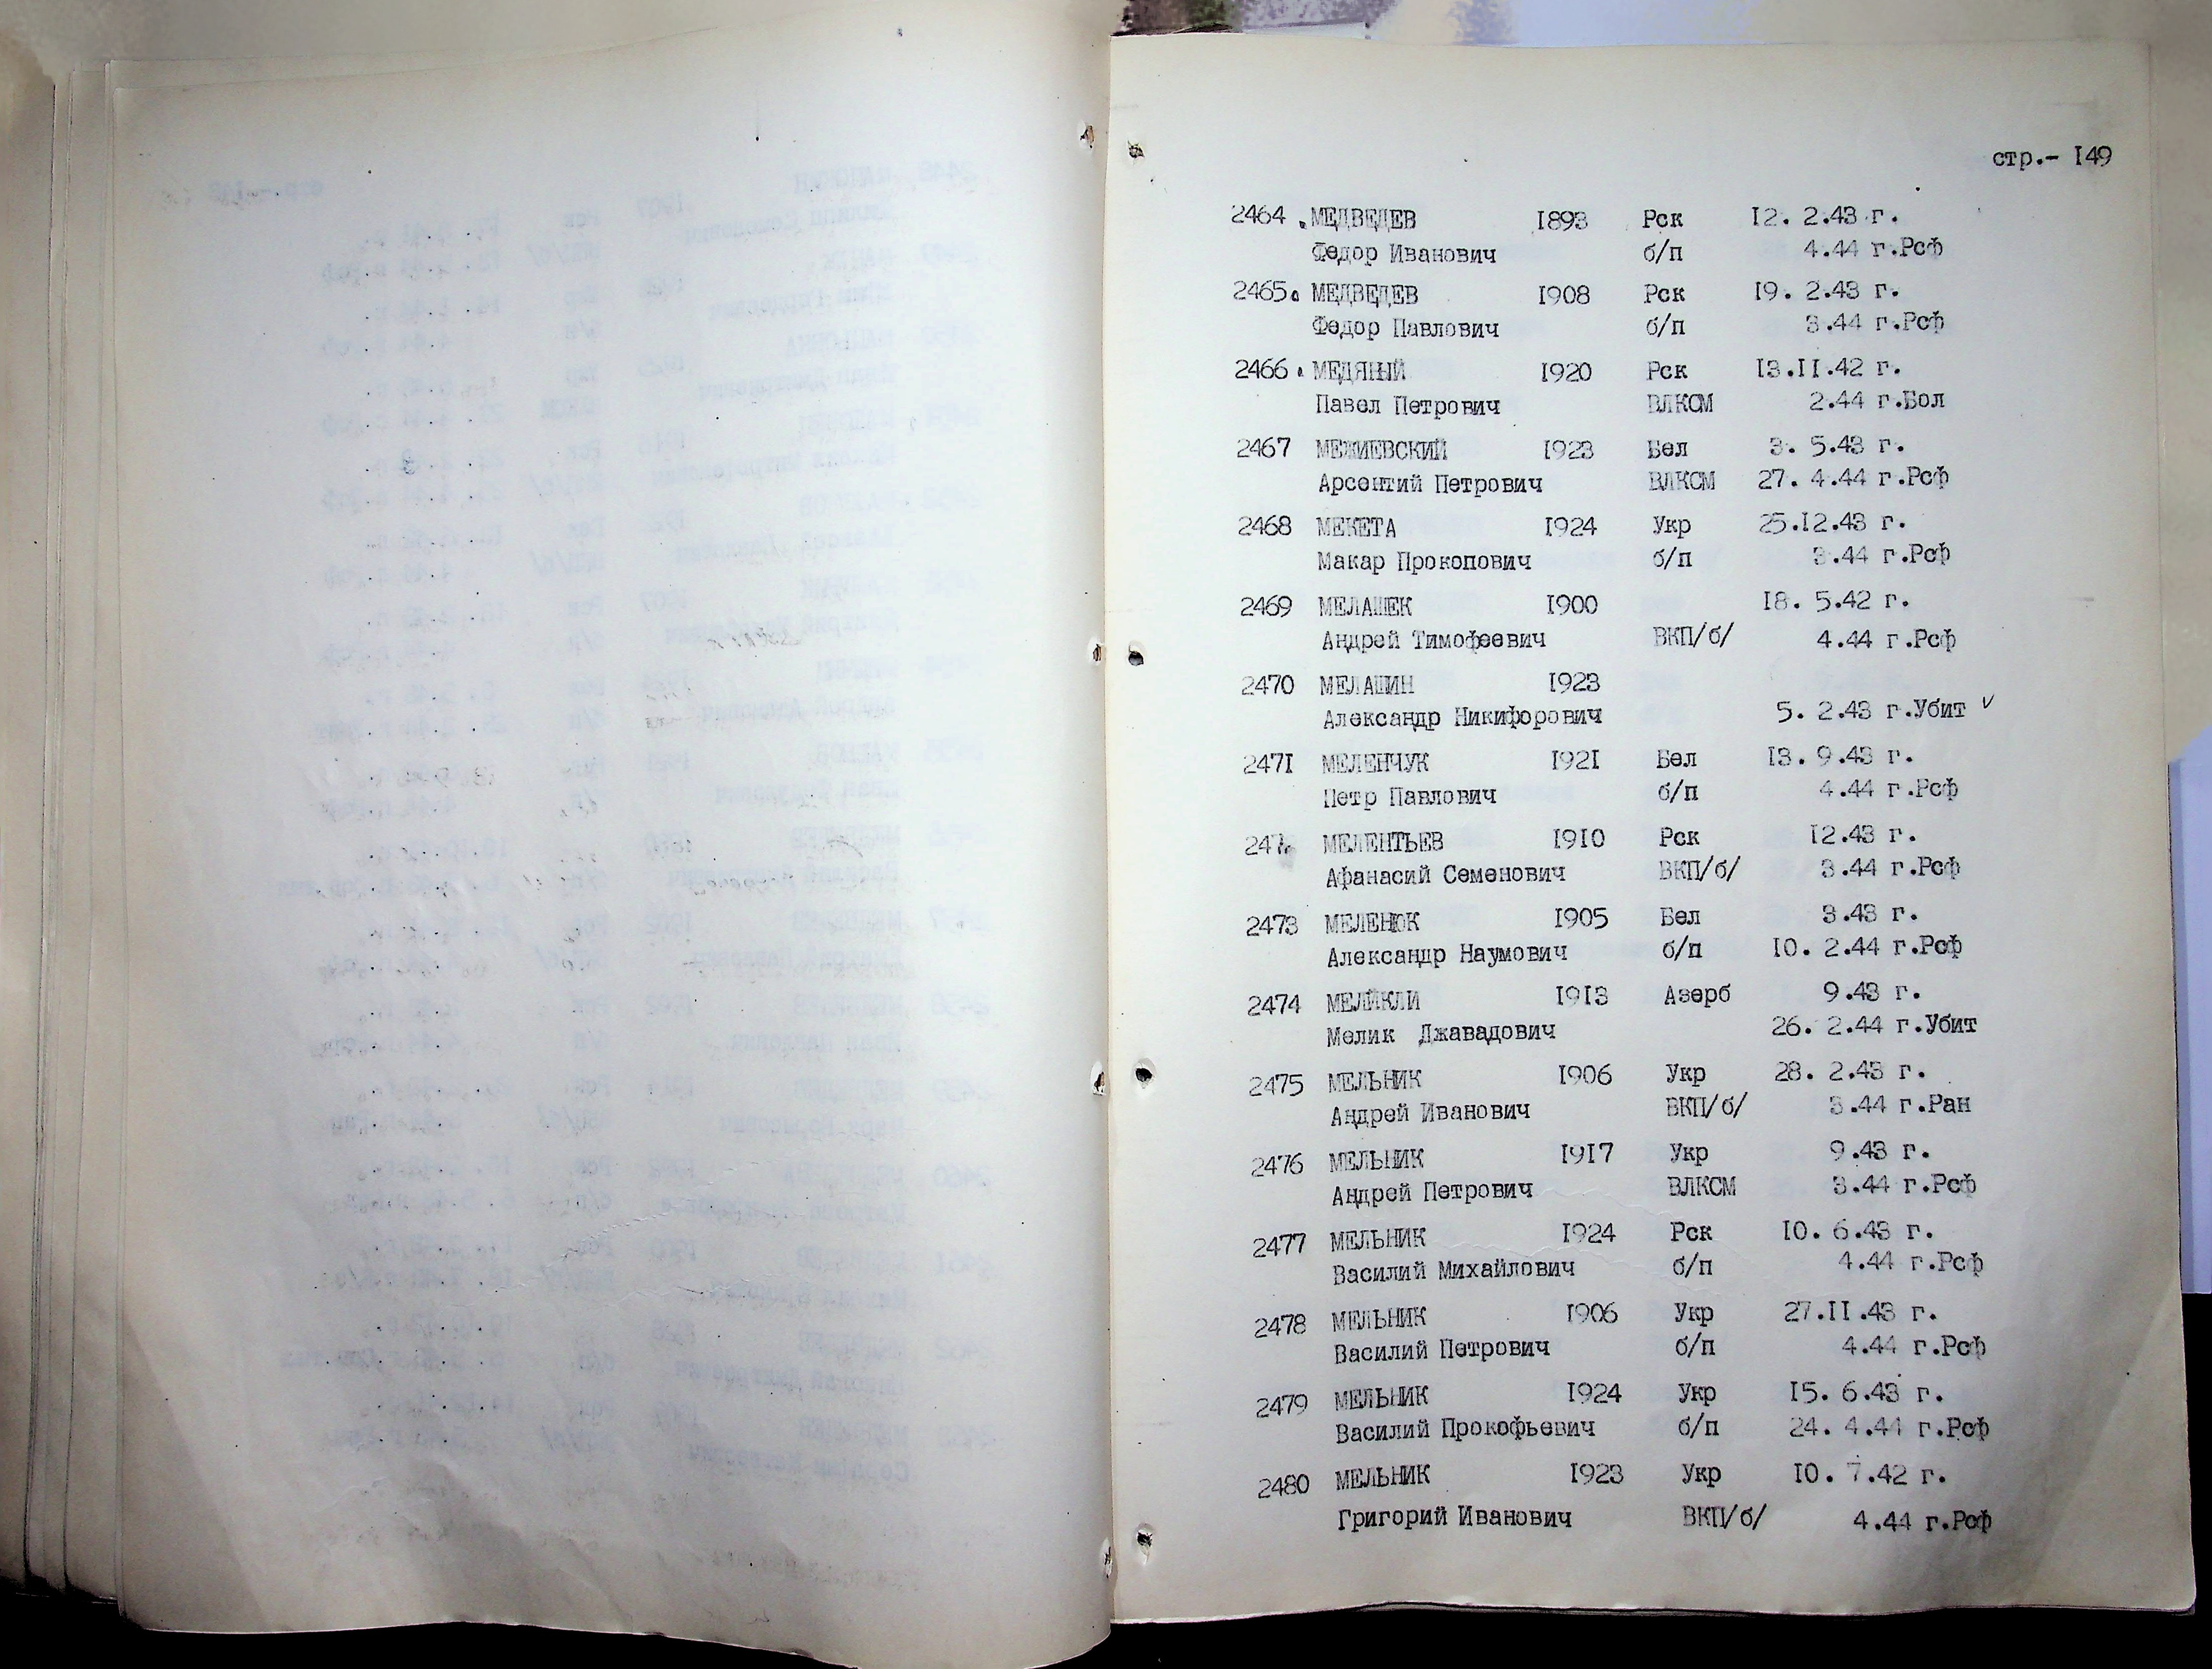 стр.- I49
2464 . МЕДВЕДЕВ I893 Рск I2. 2.43 г.
Федор Иванович б/п 4.44 г.Рсф
2465. МЕДВЕДЕВ I908 Рск I9. 2.43 г.
Федор Павлович б/п 3.44 г.Рсф
2466 . МЕДЯНЫЙ I920 Рск I3.II.42 г.
Павел Петрович ВЛКСМ 2.44 г.Бол
2467 МЕЖИЕВСКИЙ I923 Бел 3. 5.43 г.
Арсентий Петрович ВЛКСМ 27. 4.44 г.Рсф
2468 МЕКЕТА I924 Укр 25.I2.43 г.
Макар Прокопович б/п 3.44 г.Рсф
2469 МЕЛАШЕК I900 I8. 5.42 г.
Андрей Тимофеевич ВКП/б/ 4.44 г.Рсф
2470 МЕЛАШИН I923
Александр Никифорович 5. 2.43 г.Убит ✓
247I МЕЛЕНЧУК I92I Бел I3. 9.43 г.
Петр Павлович б/п 4.44 г.Рсф
МЕЛЕНТЬЕВ I9I0 Рск I2.43 г.
Афанасий Семенович ВКП/б/ 3.44 г.Рсф
2473 МЕЛЕНЮК I905 Бел 3.43 г.
Александр Наумович б/п I0. 2.44 г.Рсф
2474 МЕЛИКЛИ I9I3 Азерб 9.43 г.
Мелик Джавадович 26. 2.44 г.Убит
2475 МЕЛЬНИК I906 Укр 28. 2.43 г.
Андрей Иванович ВКП/б/ 3.44 г.Ран
2476 МЕЛЬНИК I9I7 Укр 9.43 г.
Андрей Петрович ВЛКСМ 3.44 г.Рсф
2477 МЕЛЬНИК I924 Рск I0. 6.43 г.
Василий Михайлович б/п 4.44 г.Рсф
2478 МЕЛЬНИК I906 Укр 27.II.43 г.
Василий Петрович б/п 4.44 г.Рсф
2479 МЕЛЬНИК I924 Укр I5. 6.43 г.
Василий Прокофьевич б/п 24. 4.44 г.Рсф
2480 МЕЛЬНИК I923 Укр I0. 7.42 г.
Григорий Иванович ВКП/б/ 4.44 г.Рсф